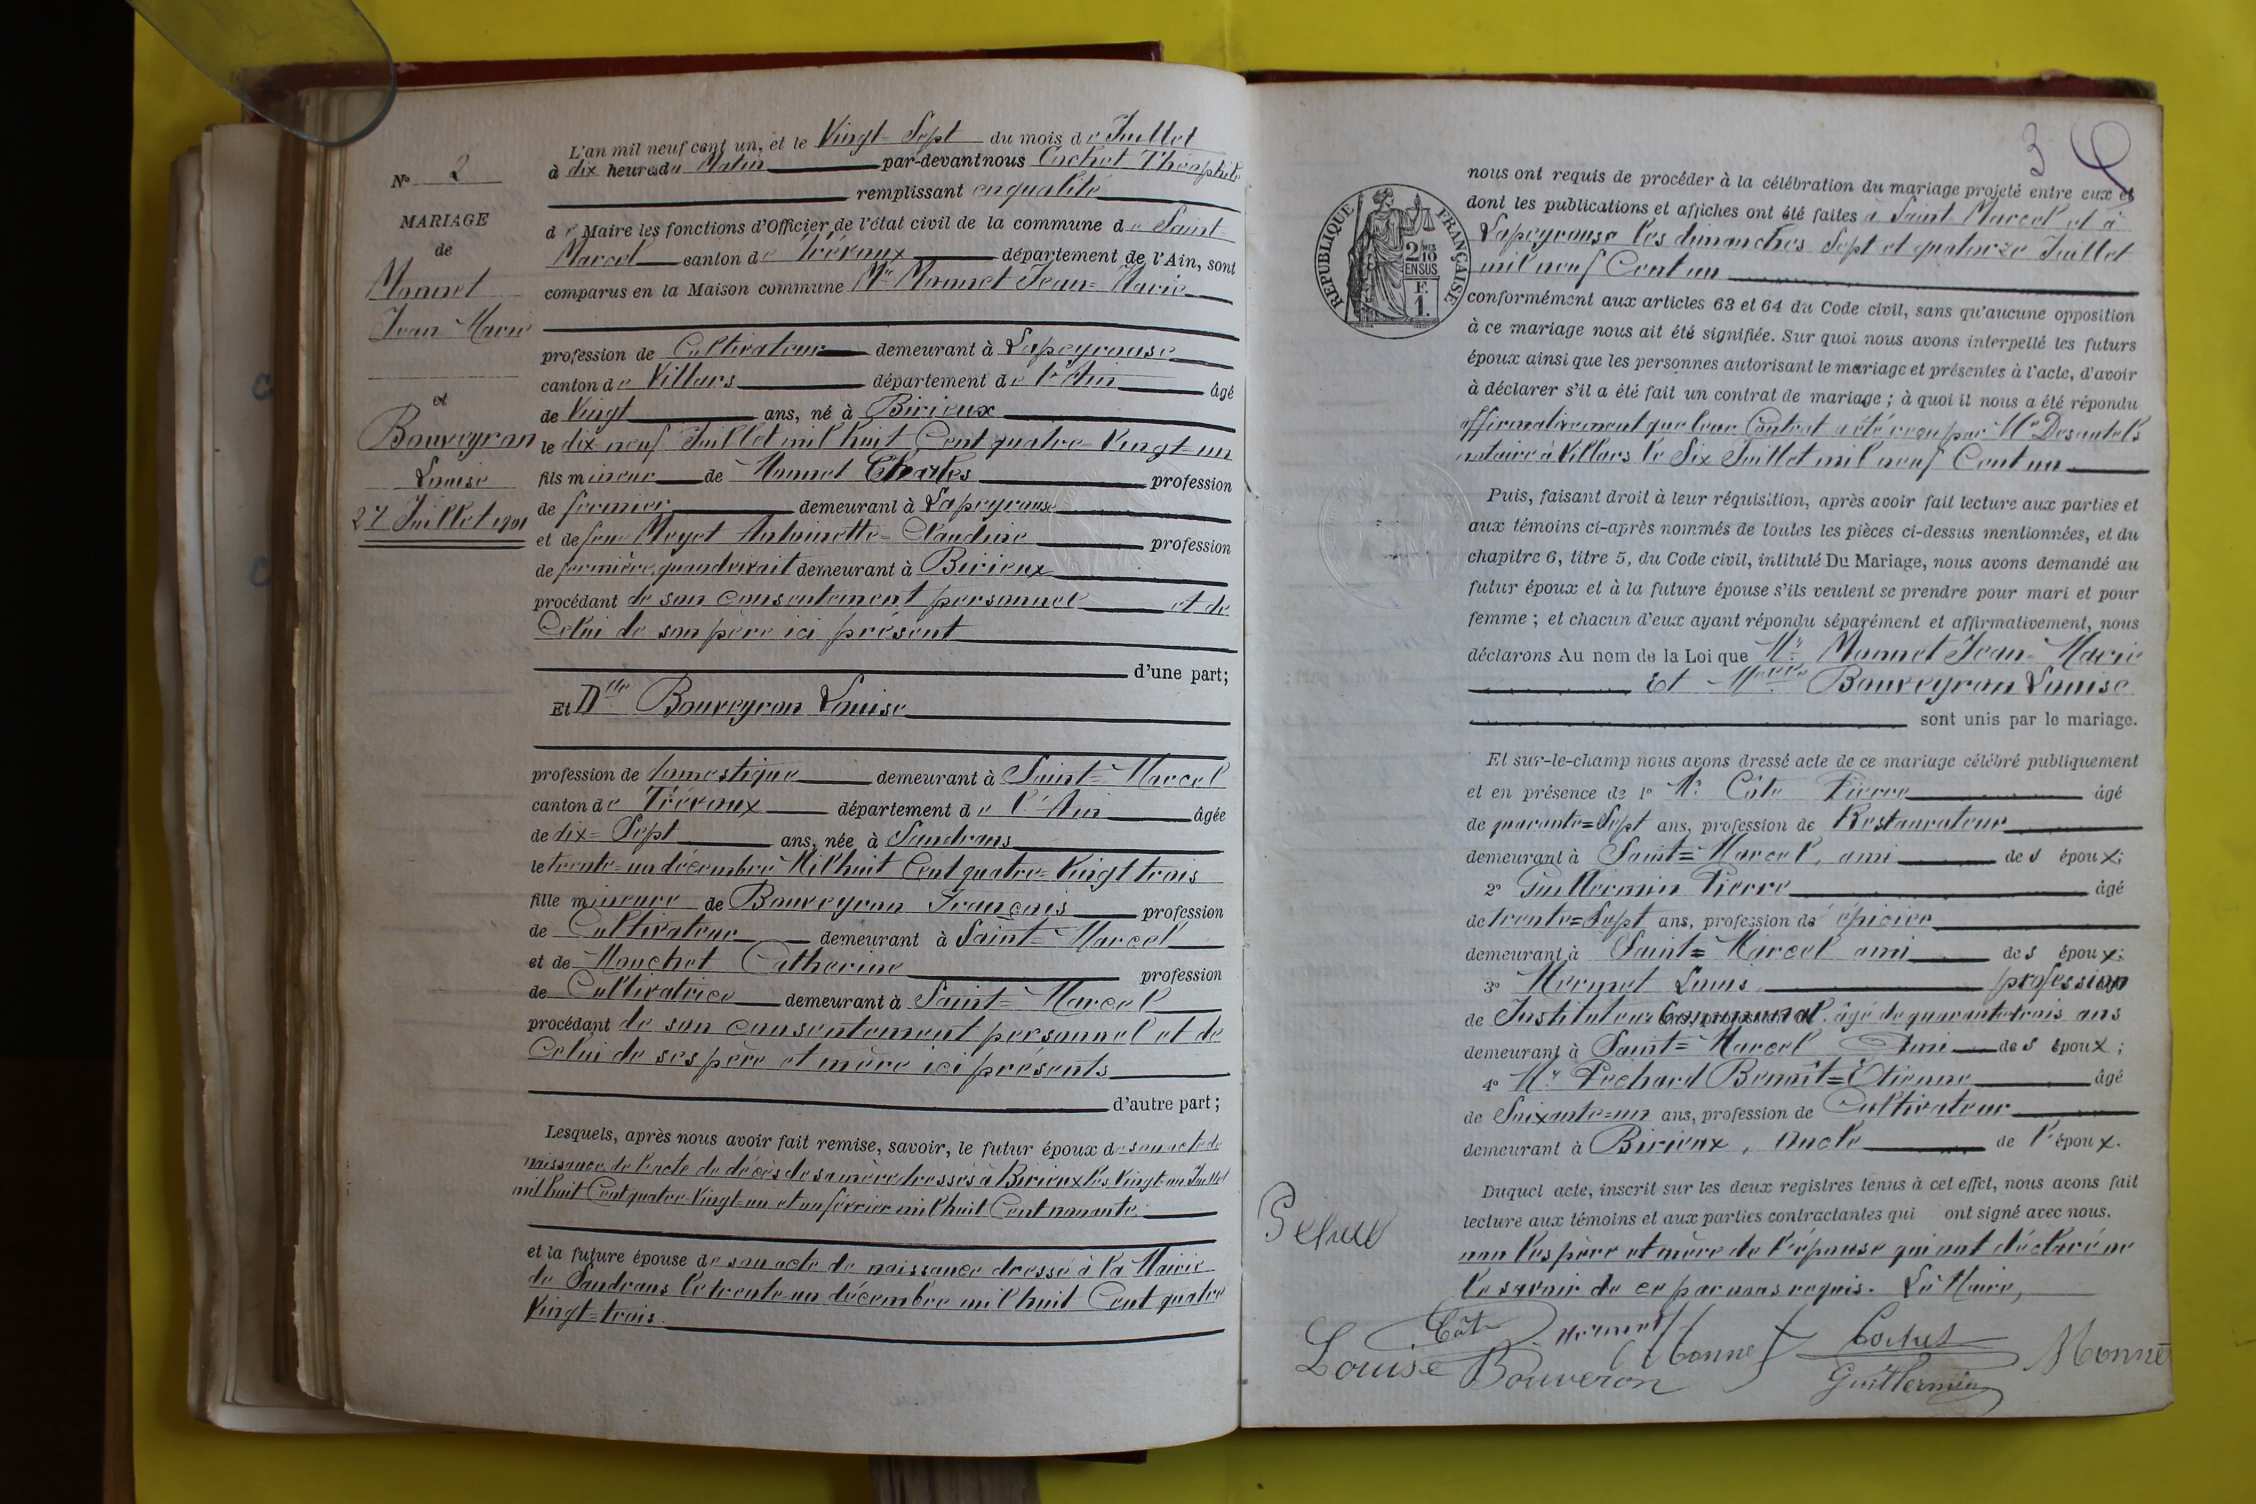 N° 2
MARIAGE
de
Monnet
Jean-Marie
et
Bouveyron
Louise
27 Juillet 1901
L'an mil neuf cent un, et le Vingt-Sept du mois de Juillet
à dix heures du Matin par-devant nous Cochet Théophile
remplissant en qualité
de Maire les fonctions d'Officier de l'état civil de la commune de Saint-
Marcel canton de Trévoux département de l'Ain, sont
comparus en la Maison commune Mr Monnet Jean-Marie
profession de Cultivateur demeurant à Lapeyrouse
canton de Villars département de l'Ain âgé
de Vingt ans, né à Birieux
le dix neuf Juillet mil huit Cent quatre-Vingt-un
fils mineur de Monnet Charles profession
de fermier demeurant à Lapeyrouse
et de feue Moyet Antoinette-Claudine profession
de fermière quand vivait demeurant à Birieux
procédant de son consentement personnel et de
Celui de son père ici présent
d'une part;
Et Dlle Bouveyron Louise
profession de domestique demeurant à Saint-Marcel
canton de Trévoux département de l'Ain âgée
de dix-Sept ans, née à Sandrans
le trente-un décembre Mil huit Cent quatre-Vingt trois
fille mineure de Bouveyron François profession
de Cultivateur demeurant à Saint-Marcel
et de Monchet Catherine profession
de Cultivatrice demeurant à Saint-Marcel
procédant de son consentement personnel et de
Celui de ses père et mère ici présents
d'autre part;
Lesquels, après nous avoir fait remise, savoir, le futur époux de son acte de
naissance, de l'acte de décès de sa mère dressés à Birieux les Vingt-un Juillet
mil huit Cent quatre-Vingt-un et un février mil huit Cent nonante
et la future épouse de son acte de naissance dressé à la Mairie
de Sandrans le trente-un décembre mil huit Cent quatre
Vingt-trois.
3
RÉPUBLIQUE FRANÇAISE
2/10 EN SUS
F. 1.
nous ont requis de procéder à la célébration du mariage projeté entre eux et
dont les publications et affiches ont été faites à Saint Marcel et à
Lapeyrouse les dimanches Sept et quatorze Juillet
mil neuf Cent un
conformément aux articles 63 et 64 du Code civil, sans qu'aucune opposition
à ce mariage nous ait été signifiée. Sur quoi nous avons interpellé les futurs
époux ainsi que les personnes autorisant le mariage et présentes à l'acte, d'avoir
à déclarer s'il a été fait un contrat de mariage; à quoi il nous a été répondu
affirmativement que leur Contrat a été reçu par Me Desautels
notaire à Villars le Six Juillet mil neuf Cent un
Puis, faisant droit à leur réquisition, après avoir fait lecture aux parties et
aux témoins ci-après nommés de toutes les pièces ci-dessus mentionnées, et du
chapitre 6, titre 5, du Code civil, intitulé Du Mariage, nous avons demandé au
futur époux et à la future épouse s'ils veulent se prendre pour mari et pour
femme; et chacun d'eux ayant répondu séparément et affirmativement, nous
déclarons Au nom de la Loi que Mr Monnet Jean-Marie
Et Melle Bouveyron Louise
sont unis par le mariage.
Et sur-le-champ nous avons dressé acte de ce mariage célébré publiquement
et en présence de 1° Mr Côte Pierre âgé
de quarante-Sept ans, profession de Restaurateur
demeurant à Saint-Marcel, ami des époux;
2° Guillermin Pierre âgé
de trente-Sept ans, profession de épicier
demeurant à Saint-Marcel ami des époux;
3° Mermet Louis profession
de Instituteur Communal, âgé de quarante trois ans
demeurant à Saint-Marcel Ami des époux;
4° Mr Pechard Benoît-Etienne âgé
de Soixante-un ans, profession de Cultivateur
demeurant à Birieux, oncle de l'époux.
Duquel acte, inscrit sur les deux registres tenus à cet effet, nous avons fait
lecture aux témoins et aux parties contractantes qui ont signé avec nous.
non les père et mère de l'épouse qui ont déclaré ne
le savoir de ce par nous requis. Le Maire,
Côte Mermet Monnet Cochet Monnet
Louise Bouveron Guillermin